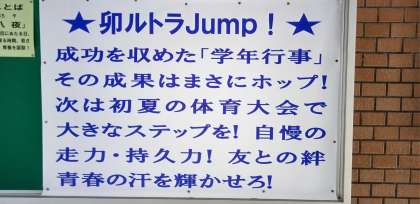 ことば
八夜」
★卯ルトラJump！★
成功を収めた「学年行事」
その成果はまさにホップ!
次は初夏の体育大会で
大きなステップを! 自慢の
走力・持久力! 友との絆
青春の汗を輝かせろ!